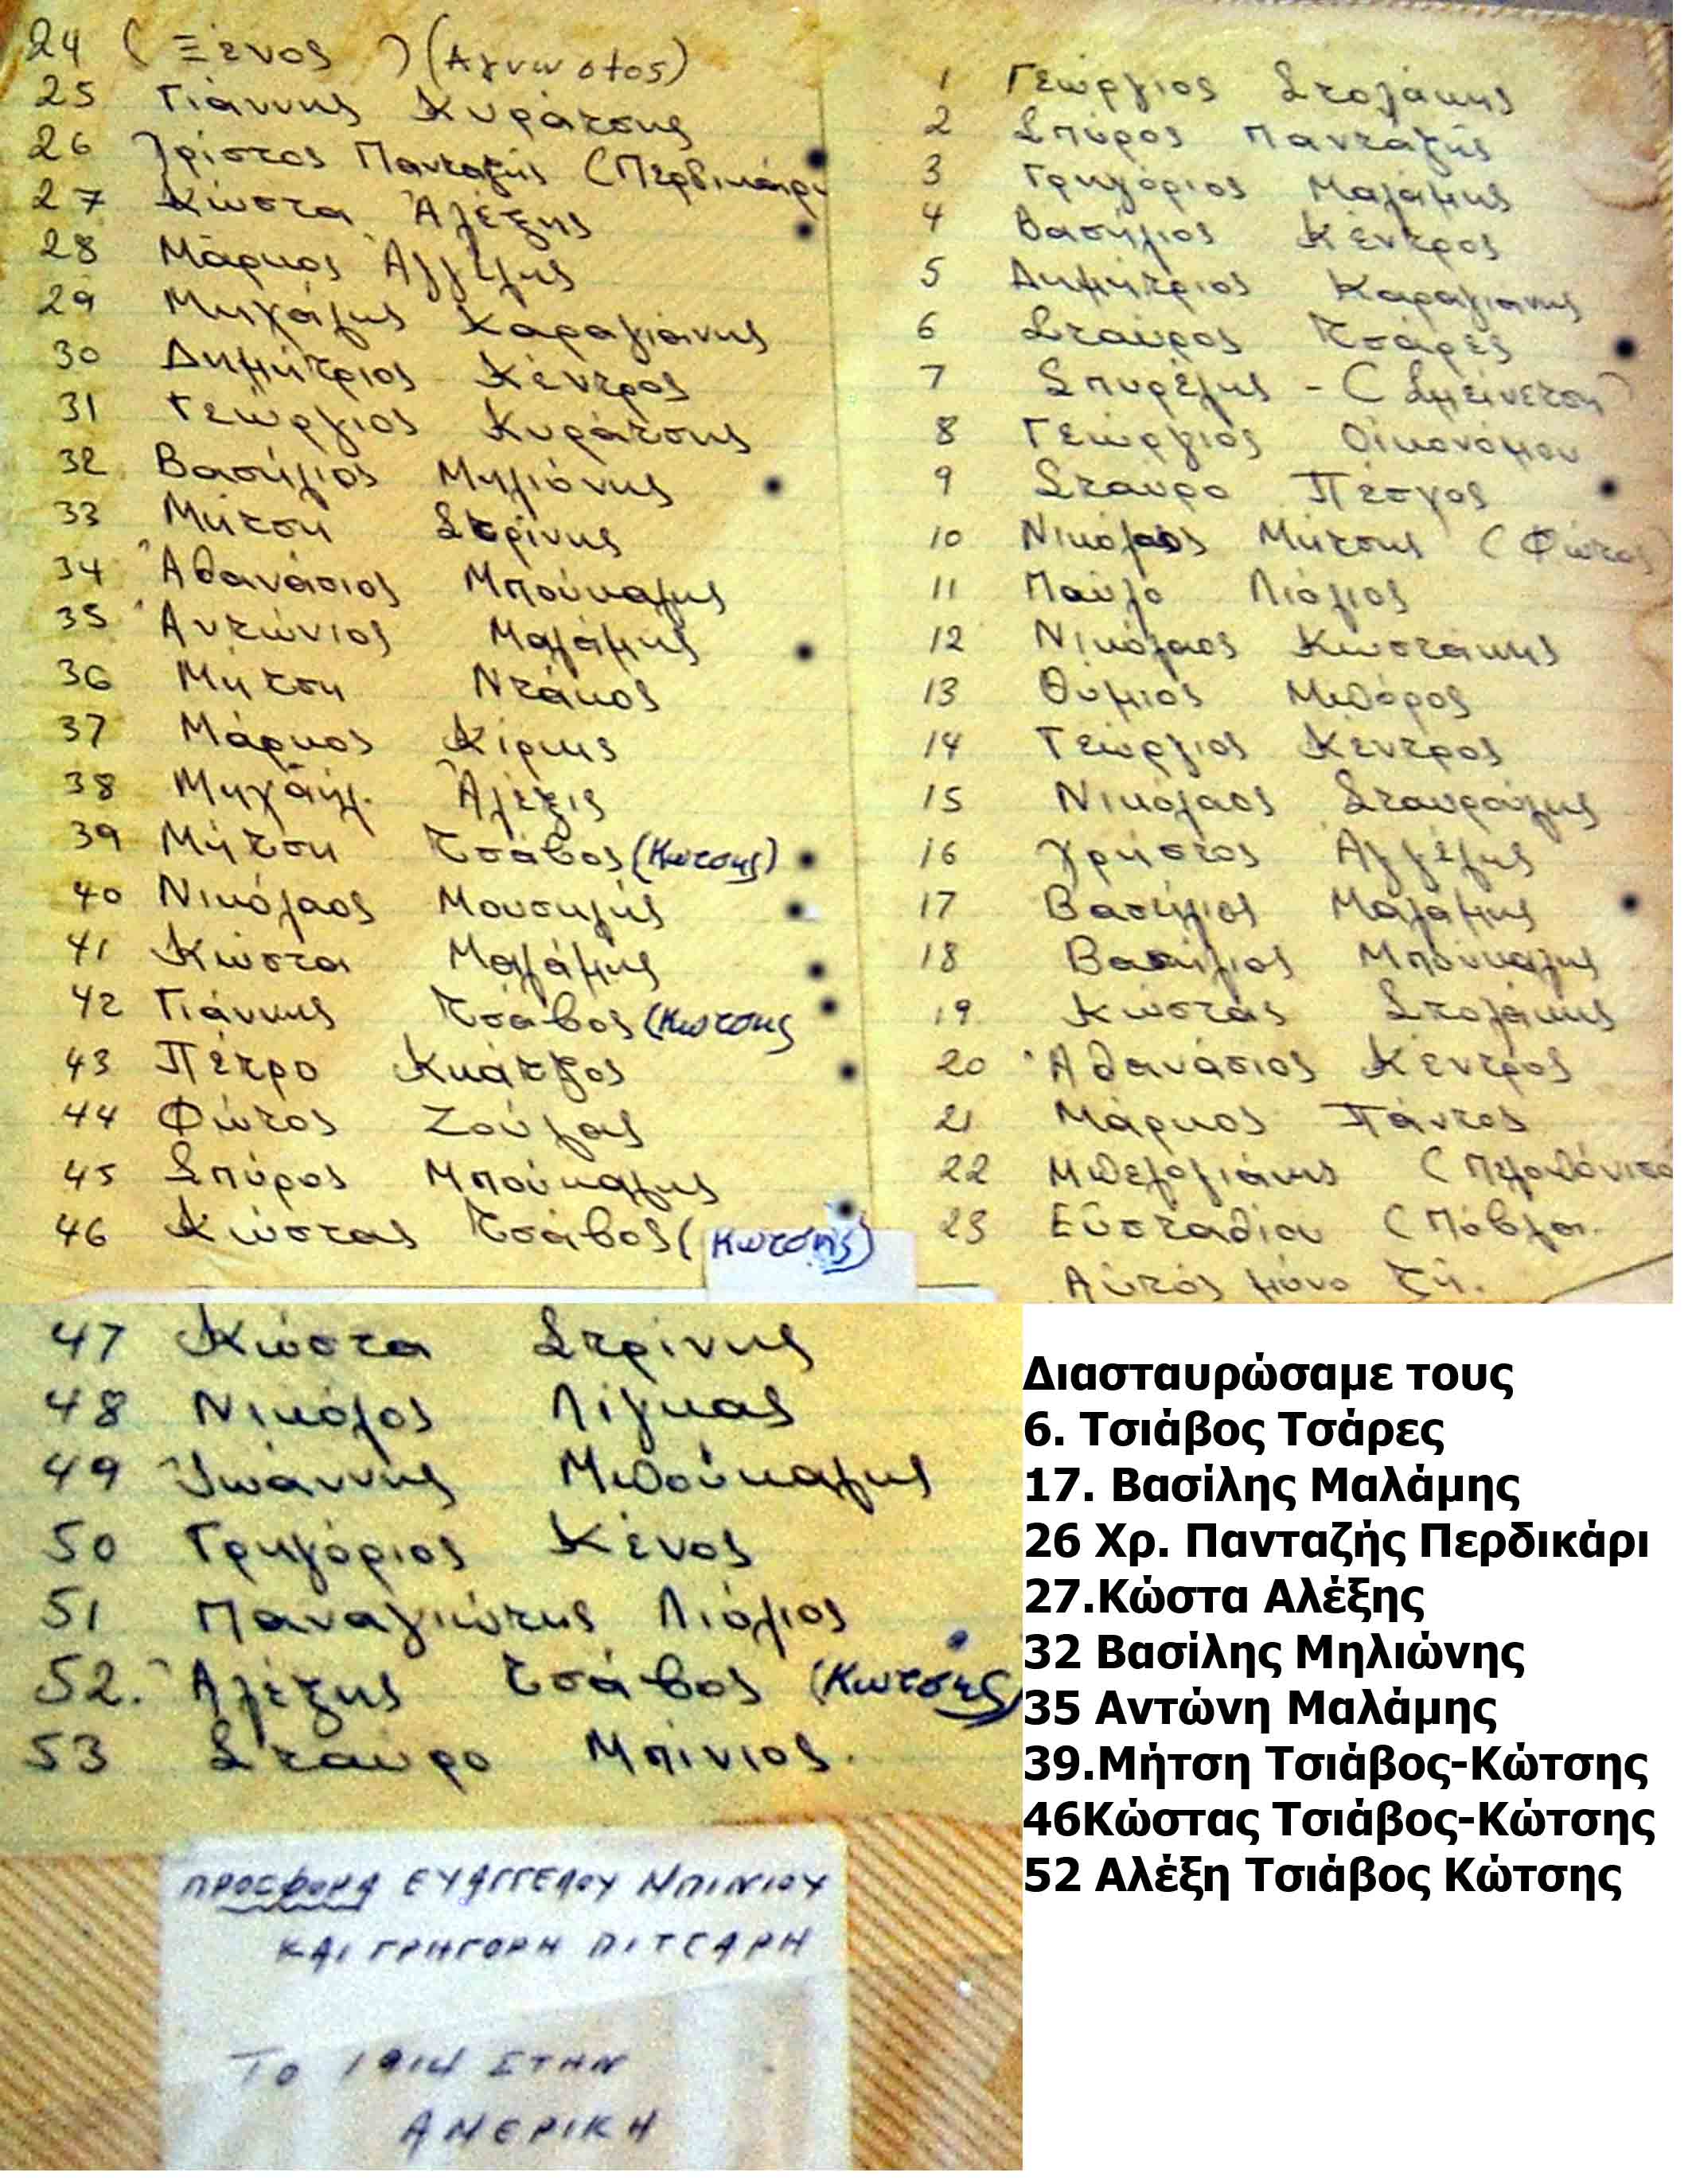 1 Γεώργιος Στολάκης
2 Σπύρος Πανταζής
3 Γρηγόριος Μαλάμης
4 Βασήλιος Κέντρος
5 Δημήτριος Καραγιάνης
6 Σταύρος Τσάρες
7 Σπυρέλης - (Σμείνετση)
8 Γεώργιος Οίκονόμου
9 Σταύρο Πέσχος
10 Νικόλαος Μήτσης (Φώτος)
11 Παύλο Λιόλιος
12 Νικόλαος Κωστάκης
13 Θύμιος Μπόρος
14 Γεώργιος Κέντρος
15 Νικόλαος Σταυρούλης
16 Χρήστος Αγγέλης
17 Βασήλιος Μαλάμης
18 Βασήλιος Μπούκαλης
19 Κώστας Στολάκης
20 Άθανάσιος Κέντρος
21 Μάρκος Πάντος
22 Μπελογιάνης (Πελοπόνισο
23 Εύσταθίου (Πόβλα.
Αύτός μόνο ζή.
24 (Ξένος) (Αγνωστος)
25 Γιάννης Κυράτσης
26 Χρίστος Πανταζής (Περδικάρι
27 Κώστα Άλέξης
28 Μάρκος Άγγέλης
29 Μηχάλης Καραγιάνης
30 Δημήτριος Κέντρος
31 Γεώργιος Κυράτσης
32 Βασήλιος Μηλιόνης
33 Μήτση Στρίνης
34 Άθανάσιος Μπούκαλης
35 Άντώνιος Μαλάμης
36 Μήτση Ντάκος
37 Μάρκος Κίρκης
38 Μηχαήλ. Άλέξις
39 Μήτση Τσάβος (Κωτσης)
40 Νικόλαος Μουσηλής
41 Κώστα Μαλάμης
42 Γιάννης Τσάβος (Κωτσης
43 Πέτρο Κκάτζος
44 Φώτος Ζούλας
45 Σπύρος Μπούκαλης
46 Κώστας Τσάβος (Κωτσης)
47 Κώστα Στρίνης
48 Νικόλος Λίγκας
49 Ίωάννης Μπούκαλης
50 Γρηγόριος Κένος
51 Παναγιώτης Λιόλιος
52. Άλέξης Τσάβος (Κωτσης)
53 Σταύρο Μπίνιος.
ΠΡΟΣΦΟΡΑ ΕΥΑΓΓΕΛΟΥ ΜΠΙΝΙΟΥ
ΚΑΙ ΓΡΗΓΟΡΗ ΠΙΤΣΑΡΗ
ΤΟ 1914 ΣΤΗΝ
ΑΜΕΡΙΚΗ
Διασταυρώσαμε τους
6. Τσιάβος Τσάρες
17. Βασίλης Μαλάμης
26 Χρ. Πανταζής Περδικάρι
27.Κώστα Αλέξης
32 Βασίλης Μηλιώνης
35 Αντώνη Μαλάμης
39.Μήτση Τσιάβος-Κώτσης
46Κώστας Τσιάβος-Κώτσης
52 Αλέξη Τσιάβος Κώτσης